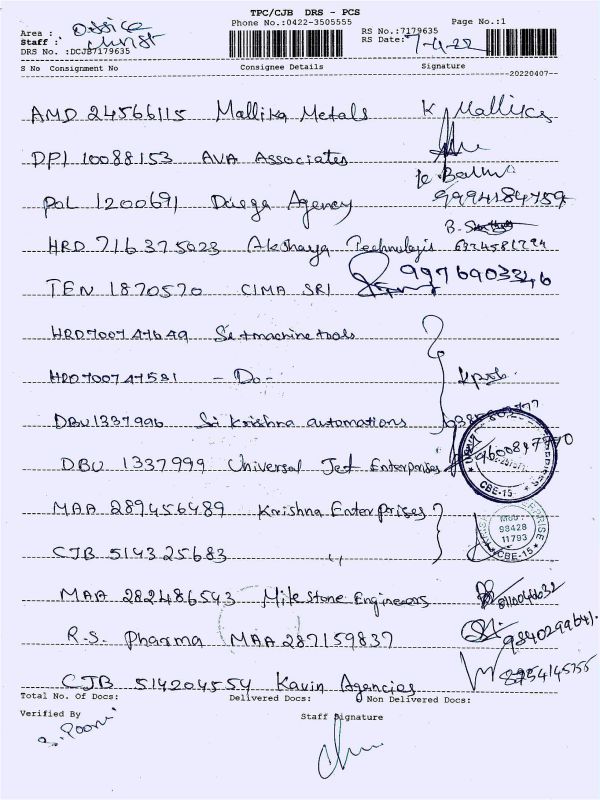 TPC/CJB DRS - PCS
Phone No.:0422-3505555 Page No.:1
Area : Office RS No.:7179635
Staff : RS Date: 7-4-22
DRS No. :DCJB7179635
S No Consignment No Consignee Details Signature
20220407
AMD 24566115 Mallika Metals K. Mallika
DPI 10088153 AVA Associates
POL 1200691 Durga Agency 9994184759
HRD 716375023 Akshaya Technologis
TEN 1870570 CIMA SRI 9976903346
HRD700747649 Se+machine tools
HRD700747581 - Do -
DBU1337996 Si Krishna automations
DBU 1337999 Universal Jet Enterprises
CBE-15
MAA 289456489 Krishna Enterprises
MOB: 98428 11793 CBE-15
CJB 514325683 "
MAA 282486543 Milestone Engineers
R.S. Pharma MAA 287159837
CJB 514204554 Kavin Agencies 8754145755
Total No. Of Docs: Delivered Docs: Non Delivered Docs:
Verified By Staff Signature